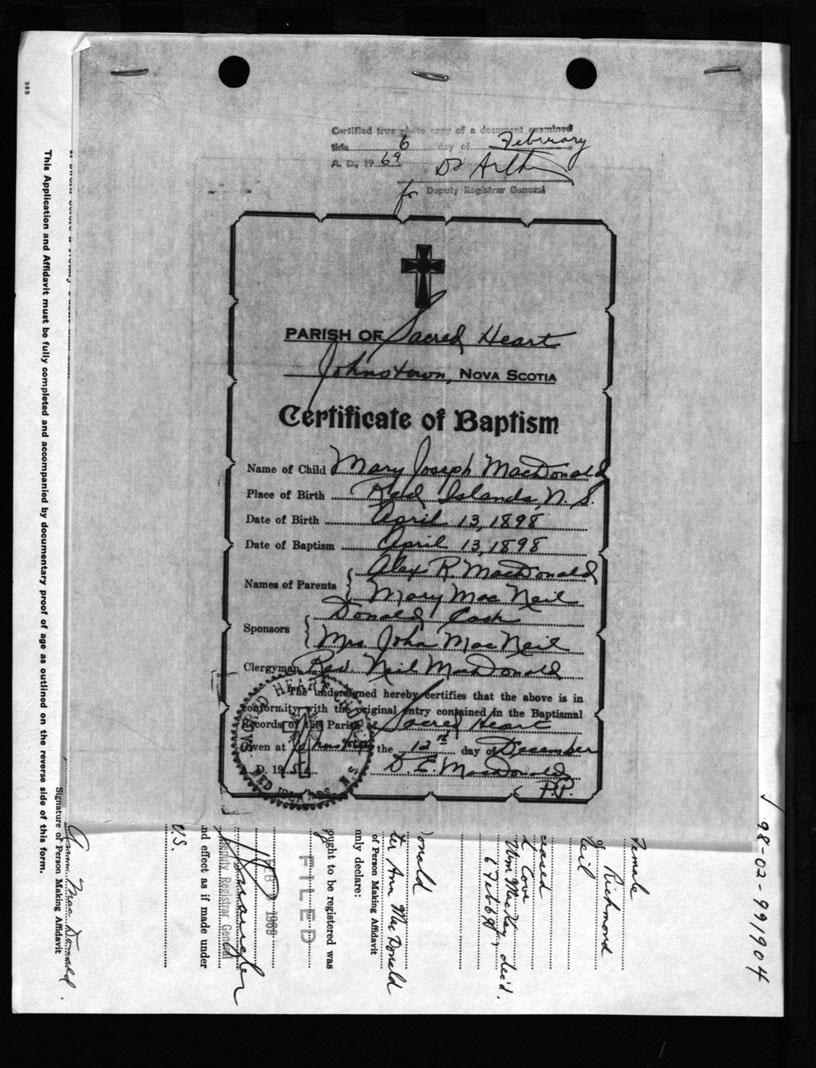 Certified true photo copy of a document examined
this 6 day of February
A. D., 1969
for Deputy Registrar General
PARISH OF Sacred Heart
Johnstown, NOVA SCOTIA
Certificate of Baptism
Name of Child Mary Joseph MacDonald
Place of Birth Red Islands, N.S.
Date of Birth April 13, 1898
Date of Baptism April 13, 1898
Names of Parents { Alex R. MacDonald
Mary MacNeil
Sponsors { Donald Cash
Mrs John MacNeil
Clergyman Rev. Neil MacDonald
The undersigned hereby certifies that the above is in
conformity with the original entry contained in the Baptismal
Records of the Parish of Sacred Heart
Given at Johnstown the 12th day of December
D. 195
D. E. MacDonald
P.P.
385
This Application and Affidavit must be fully completed and accompanied by documentary proof of age as outlined on the reverse side of this form.
Signature of Person Making Affidavit
MacDonald
U.S.
nd effect as if made under
Deputy Registrar General
1969
FILED
ought to be registered was
nnly declare:
of Person Making Affidavit
ter Ann MacDonald
onald
6 Feb 69
Wm MacKay, dec'd.
Cove
ceased
eil
Richmond
Female
98-02-991904